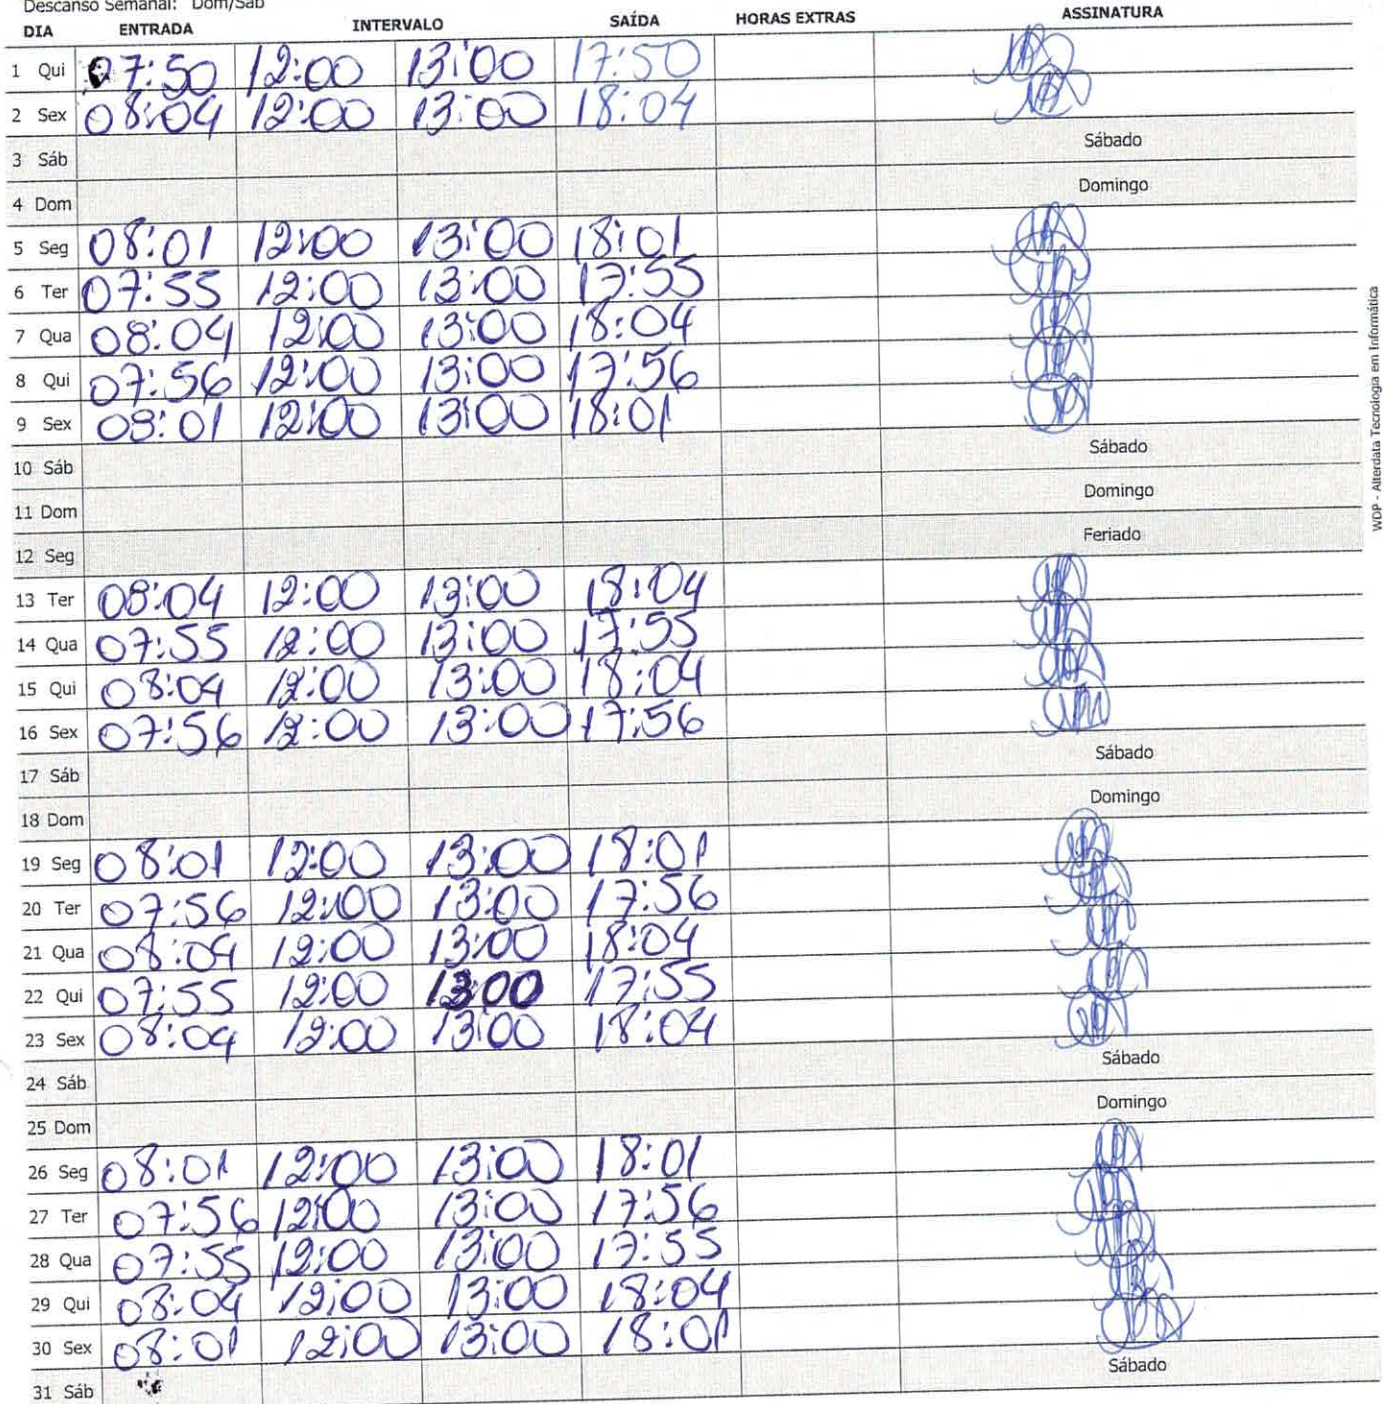 Descanso Semanal: Dom/Sáb
DIA ENTRADA INTERVALO SAÍDA HORAS EXTRAS ASSINATURA
1 Qui 07:50 12:00 13:00 17:50
2 Sex 08:04 12:00 13:00 18:04
3 Sáb Sábado
4 Dom Domingo
5 Seg 08:01 12:00 13:00 18:01
6 Ter 07:55 12:00 13:00 17:55
7 Qua 08:04 12:00 13:00 18:04
8 Qui 07:56 12:00 13:00 17:56
9 Sex 08:01 12:00 13:00 18:01
10 Sáb Sábado
11 Dom Domingo
12 Seg Feriado
13 Ter 08:04 12:00 13:00 18:04
14 Qua 07:55 12:00 13:00 17:55
15 Qui 08:04 12:00 13:00 18:04
16 Sex 07:56 12:00 13:00 17:56
17 Sáb Sábado
18 Dom Domingo
19 Seg 08:01 12:00 13:00 18:01
20 Ter 07:56 12:00 13:00 17:56
21 Qua 08:04 12:00 13:00 18:04
22 Qui 07:55 12:00 13:00 17:55
23 Sex 08:04 12:00 13:00 18:04
24 Sáb Sábado
25 Dom Domingo
26 Seg 08:01 12:00 13:00 18:01
27 Ter 07:56 12:00 13:00 17:56
28 Qua 07:55 12:00 13:00 17:55
29 Qui 08:04 12:00 13:00 18:04
30 Sex 08:01 12:00 13:00 18:01
31 Sáb Sábado
WDP - Alterdata Tecnologia em Informática